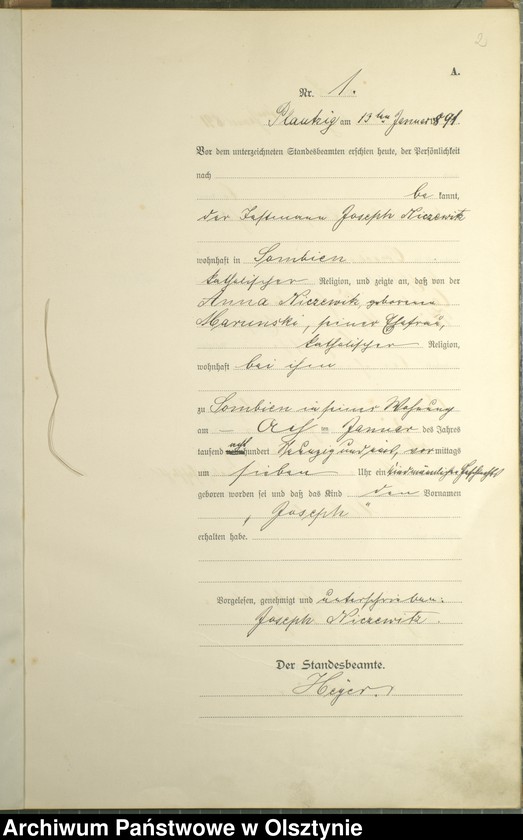 2
A.
Nr. 1.
Plautzig am 13ten Januar 1891.
Vor dem unterzeichneten Standesbeamten erschien heute, der Persönlichkeit
nach
be kannt,
der Instmann Joseph Niczewitz
wohnhaft in Sombien
katholischer Religion, und zeigte an, daß von der
Anna Niczewik, geborene
Marunski, seiner Ehefrau,
katholischer Religion,
wohnhaft bei ihm
zu Sombien in seiner Wohnung
am Januar des Jahres
tausend acht hundert neunzig und eins, vor mittags
um sieben Uhr ein Kind männlichen Geschlechts
geboren worden sei und daß das Kind den Vornamen
„Joseph“
erhalten habe.
Vorgelesen, genehmigt und unterschrieben:
Joseph Niczewitz.
Der Standesbeamte.
Heyer.
Archiwum Państwowe w Olsztynie